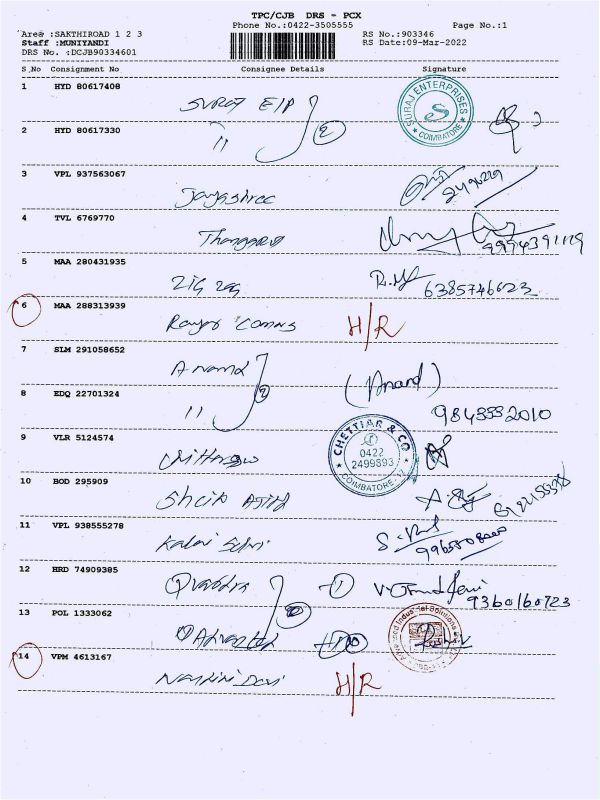 TPC/CJB DRS - PCX
Phone No.:0422-3505555 Page No.:1
Area :SAKTHIROAD 1 2 3 RS No.:903346
Staff :MUNIYANDI RS Date:09-Mar-2022
DRS No. :DCJB90334601
S No Consignment No Consignee Details Signature
1 HYD 80617408
SURAJ EIP
SURAJ ENTERPRISES COIMBATORE
2 HYD 80617330
11 2
3 VPL 937563067
Jayashree
4 TVL 6769770
Thangaraj 9994391119
5 MAA 280431935
ZIG ZAG 6385746023
6 MAA 288313939
H/R
7 SLM 291058652
Anand (Anand)
8 EDQ 22701324
11 2 9843552010
9 VLR 5124574
CHETTIAR & CO 0422 2499893 COIMBATORE
10 BOD 295909
11 VPL 938555278
Kalai Selvi
12 HRD 74909385
1 9360160723
13 POL 1333062
Industrial Solutions
14 VPM 4613167
Nandini Devi H/R